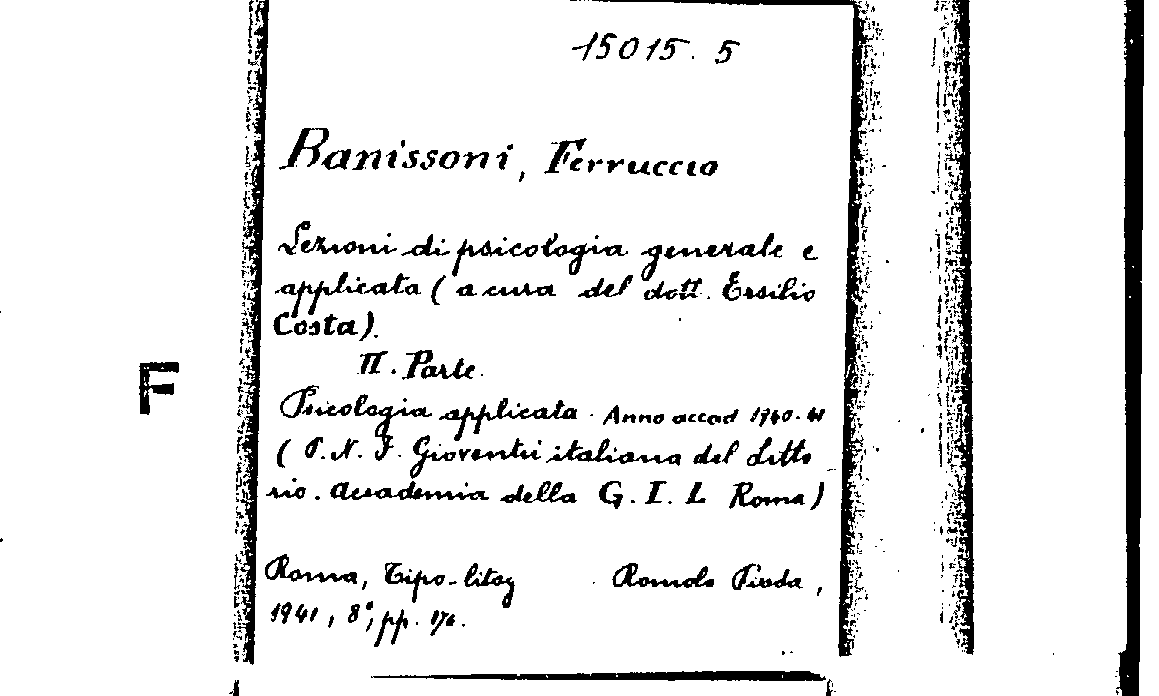 15015. 5
Banissoni, Ferruccio
Lezioni di psicologia generale e
applicata ( a cura del dott. Ersilio
Costa).
II. Parte.
F
Psicologia applicata. Anno accad 1940-41
( P. N. F. Gioventù italiana del Litto
rio. Accademia della G. I. L Roma)
Roma, Tipo-litog Romolo Pioda,
1941, 8°, pp.